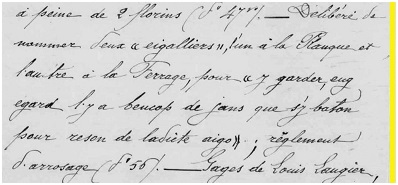 à peine de 2 florins (fº 47vº). — Délibéré de
nommer deux « eigalliers », l'un à la Plauque et
l'autre à la Ferrage, pour « y garder, eug
egard l'y a beucop de jans que sy baton
pour reson de ladiete aigo » ; règlement
d'arrosage (fº 56). — Gages de Louis Laugier,